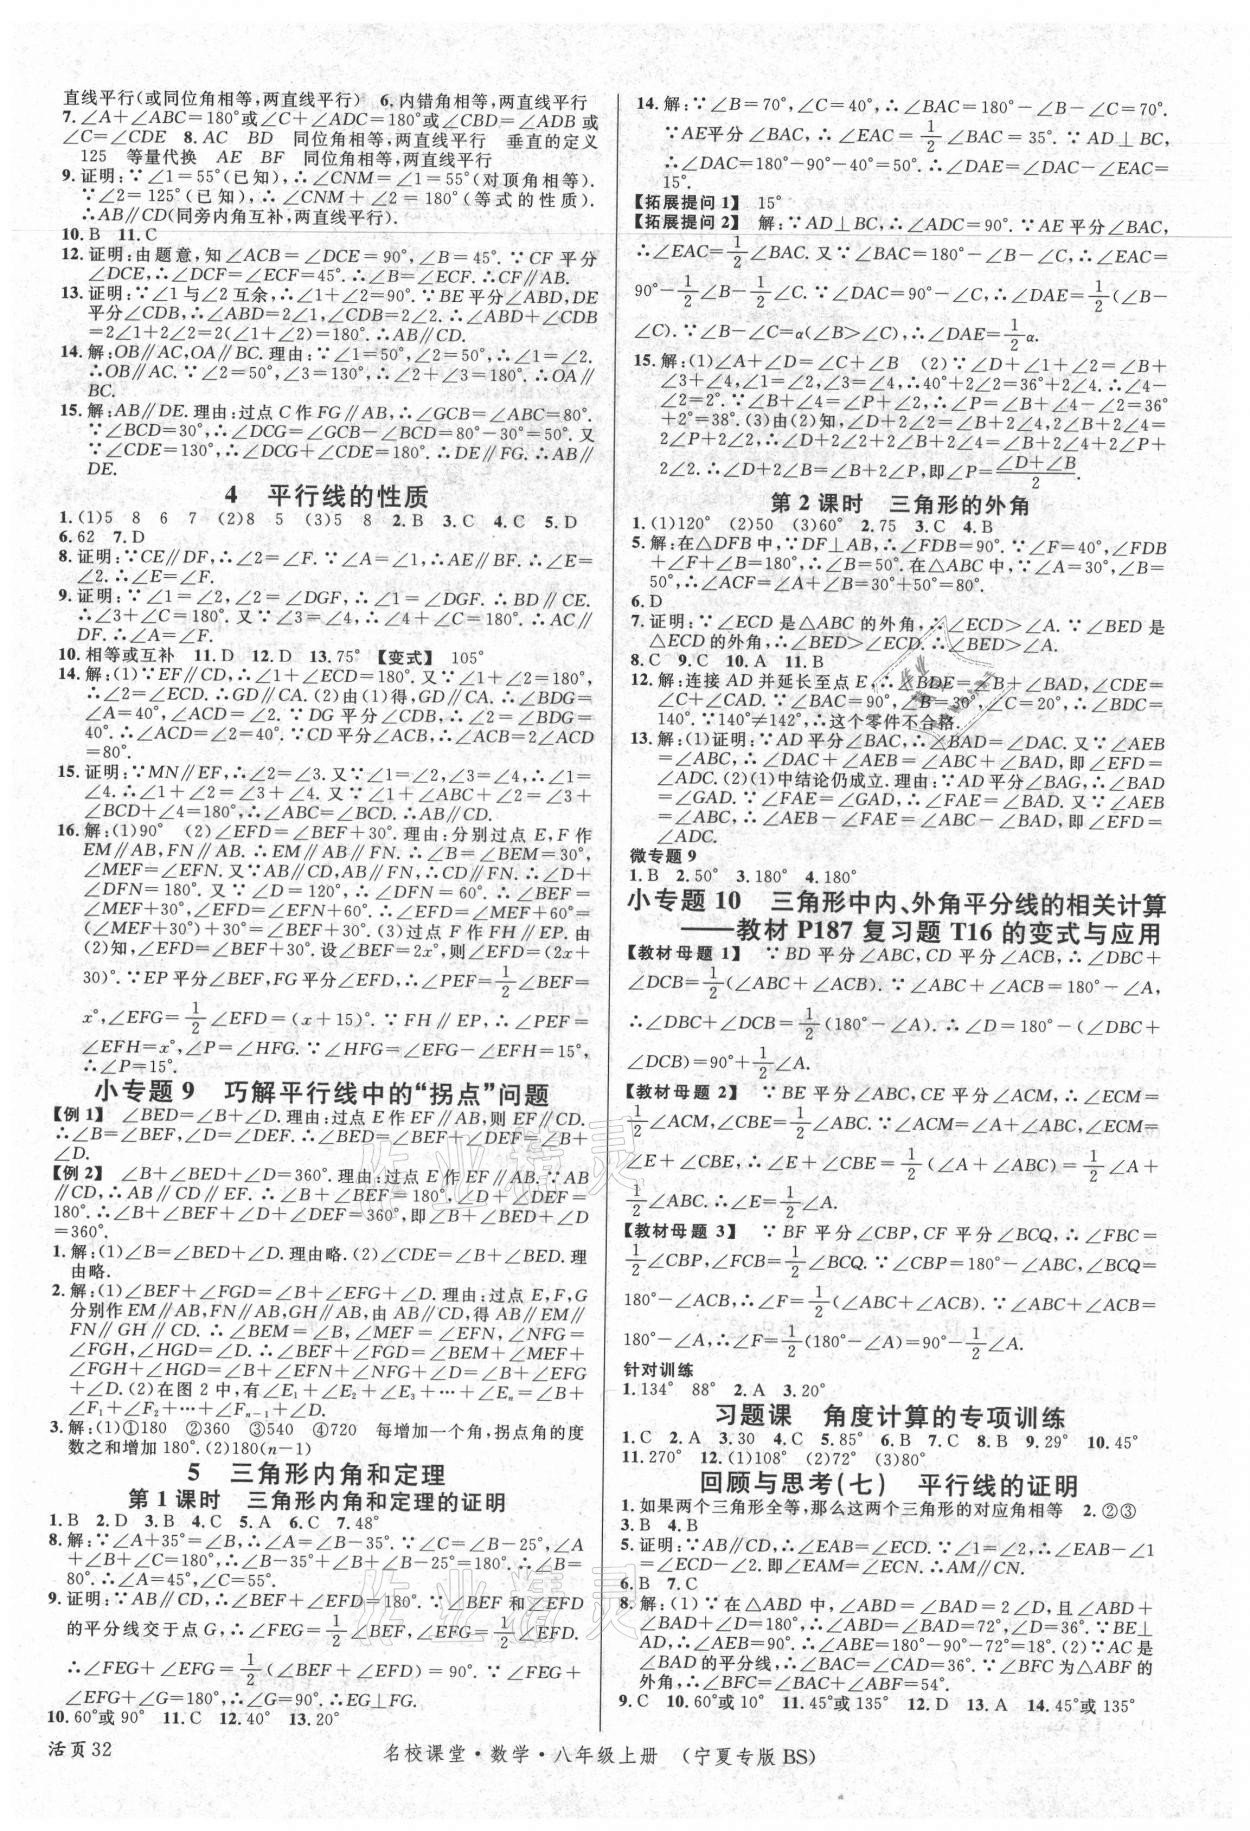 直线平行(或同位角相等,两直线平行)　6.内错角相等,两直线平行
7.∠A+∠ABC=180°或∠C+∠ADC=180°或∠CBD=∠ADB或
∠C=∠CDE　8. AC　BD　同位角相等,两直线平行　垂直的定义
125　等量代换　AE　BF　同位角相等,两直线平行
9.证明:∵∠1=55°(已知),∴∠CNM=∠1=55°(对顶角相等).
∵∠2=125°(已知),∴∠CNM+∠2=180°(等式的性质).
∴AB∥CD(同旁内角互补,两直线平行).
10.B　11.C
12.证明:由题意,知∠ACB=∠DCE=90°,∠B=45°.∵CF平分
∠DCE,∴∠DCF=∠ECF=45°.∴∠B=∠ECF.∴CF∥AB.
13.证明:∵∠1与∠2互余,∴∠1+∠2=90°.∵BE平分∠ABD,DE
平分∠CDB,∴∠ABD=2∠1,∠CDB=2∠2.∴∠ABD+∠CDB
=2∠1+2∠2=2(∠1+∠2)=180°.∴AB∥CD.
14.解:OB∥AC,OA∥BC.理由:∵∠1=50°,∠2=50°,∴∠1=∠2.
∴OB∥AC.∵∠2=50°,∠3=130°,∴∠2+∠3=180°.∴OA∥
BC.
15.解:AB∥DE.理由:过点C作FG∥AB,∴∠GCB=∠ABC=80°.
∵∠BCD=30°,∴∠DCG=∠GCB-∠BCD=80°-30°=50°.又
∵∠CDE=130°,∴∠DCG+∠CDE=180°.∴DE∥FG.∴AB∥
DE.
4　平行线的性质
1.(1)5　8　6　7　(2)8　5　(3)5　8　2.B　3.C　4.C　5.D
6.62　7.D
8.证明:∵CE∥DF,∴∠2=∠F.∵∠A=∠1,∴AE∥BF.∴∠E=
∠2.∴∠E=∠F.
9.证明:∵∠1=∠2,∠2=∠DGF,∴∠1=∠DGF.∴BD∥CE.
∴∠3+∠C=180°.又∵∠3=∠4,∴∠4+∠C=180°.∴AC∥
DF.∴∠A=∠F.
10.相等或互补　11.D　12.D　13.75°【变式】105°
14.解:(1)∵EF∥CD,∴∠1+∠ECD=180°.又∵∠1+∠2=180°,
∴∠2=∠ECD.∴GD∥CA.(2)由(1)得,GD∥CA.∴∠BDG=
∠A=40°,∠ACD=∠2.∵DG平分∠CDB,∴∠2=∠BDG=
40°.∴∠ACD=∠2=40°.∵CD平分∠ACB,∴∠ACB=2∠ACD
=80°.
15.证明:∵MN∥EF,∴∠2=∠3.又∵∠1=∠2,∠3=∠4,∴∠1=
∠4.∴∠1+∠2=∠3+∠4.又∵∠1+∠ABC+∠2=∠3+
∠BCD+∠4=180°,∴∠ABC=∠BCD.∴AB∥CD.
16.解:(1)90°　(2)∠EFD=∠BEF+30°.理由:分别过点E,F作
EM∥AB,FN∥AB.∴EM∥AB∥FN.∴∠B=∠BEM=30°,
∠MEF=∠EFN.又∵AB∥CD,AB∥FN,∴CD∥FN.∴∠D+
∠DFN=180°.又∵∠D=120°,∴∠DFN=60°.∴∠BEF=
∠MEF+30°,∠EFD=∠EFN+60°.∴∠EFD=∠MEF+60°=
(∠MEF+30°)+30°=∠BEF+30°.(3)过点F作FH∥EP.由
(2)知,∠EFD=∠BEF+30°.设∠BEF=2x°,∴∠EFD=(2x+
30)°.∵EP平分∠BEF,FG平分∠EFD,∴∠PEF=1/2∠BEF=
x°,∠EFG=1/2∠EFD=(x+15)°.∵FH∥EP,∴∠PEF=
∠EFH=x°,∠P=∠HFG.∵∠HFG=∠EFG-∠EFH=15°,
∴∠P=15°.
小专题9　巧解平行线中的“拐点”问题
【例1】　∠BED=∠B+∠D.理由:过点E作EF∥AB,则EF∥CD.
∴∠B=∠BEF,∠D=∠DEF.∴∠BED=∠BEF+∠DEF=∠B+
∠D.
【例2】　∠B+∠BED+∠D=360°.理由:过点E作EF∥AB.∵AB
∥CD,∴AB∥CD∥EF.∴∠B+∠BEF=180°,∠D+∠DEF=
180°.∴∠B+∠BEF+∠D+∠DEF=360°,即∠B+∠BED+∠D
=360°.
1.解:(1)∠B=∠BED+∠D.理由略.(2)∠CDE=∠B+∠BED.理
由略.
2.解:(1)∠BEF+∠FGD=∠B+∠EFG+∠D.理由:过点E,F,G
分别作EM∥AB,FN∥AB,GH∥AB,由AB∥CD,得AB∥EM∥
FN∥GH∥CD.∴∠BEM=∠B,∠MEF=∠EFN,∠NFG=
∠FGH,∠HGD=∠D.∴∠BEF+∠FGD=∠BEM+∠MEF+
∠FGH+∠HGD=∠B+∠EFN+∠NFG+∠D=∠B+∠EFG
+∠D.(2)在图2中,有∠E₁+∠E₂+∠E₃+…+∠Eₙ=∠B+
∠F₁+∠F₂+…+∠Fₙ₋₁+∠D.
3.解:(1)①180　②360　③540　④720　每增加一个角,拐点角的度
数之和增加180°.(2)180(n-1)
5　三角形内角和定理
第1课时　三角形内角和定理的证明
1.B　2.D　3.B　4.C　5.A　6.C　7.48°
8.解:∵∠A+35°=∠B,∴∠A=∠B-35°.∵∠C=∠B-25°,∠A
+∠B+∠C=180°,∴∠B-35°+∠B+∠B-25°=180°.∴∠B=
80°.∴∠A=45°,∠C=55°.
9.证明:∵AB∥CD,∴∠BEF+∠EFD=180°.∵∠BEF和∠EFD
的平分线交于点G,∴∠FEG=1/2∠BEF,∠EFG=1/2∠EFD.
∴∠FEG+∠EFG=1/2(∠BEF+∠EFD)=90°.∵∠FEG+
∠EFG+∠G=180°,∴∠G=90°.∴EG⊥FG.
10.60°或90°　11.C　12.40°　13.20°
14.解:∵∠B=70°,∠C=40°,∴∠BAC=180°-∠B-∠C=70°.
∵AE平分∠BAC,∴∠EAC=1/2∠BAC=35°.∵AD⊥BC,
∴∠DAC=180°-90°-40°=50°.∴∠DAE=∠DAC-∠EAC=
15°.
【拓展提问1】　15°
【拓展提问2】　解:∵AD⊥BC,∴∠ADC=90°.∵AE平分∠BAC,
∴∠EAC=1/2∠BAC.又∵∠BAC=180°-∠B-∠C,∴∠EAC=
90°-1/2∠B-1/2∠C.∵∠DAC=90°-∠C,∴∠DAE=1/2(∠B-
∠C).∵∠B-∠C=α(∠B>∠C),∴∠DAE=1/2α.
15.解:(1)∠A+∠D=∠C+∠B　(2)∵∠D+∠1+∠2=∠B+
∠3+∠4,∠1=∠2,∠3=∠4,∴40°+2∠2=36°+2∠4.∴∠4-
∠2=2°.∵∠B+∠4=∠P+∠2,∴∠P=∠B+∠4-∠2=36°
+2°=38°.(3)由(2)知,∠D+2∠2=∠B+2∠4,2∠B+2∠4=
2∠P+2∠2,∴∠D+2∠2+2∠B+2∠4=∠B+2∠4+2∠P+
2∠2.∴∠D+2∠B=∠B+2∠P,即∠P=(∠D+∠B)/2.
第2课时　三角形的外角
1.(1)120°　(2)50　(3)60°　2.75　3.C　4.B
5.解:在△DFB中,∵DF⊥AB,∴∠FDB=90°.∵∠F=40°,∠FDB
+∠F+∠B=180°,∴∠B=50°.在△ABC中,∵∠A=30°,∠B=
50°,∴∠ACF=∠A+∠B=30°+50°=80°.
6.D
7.证明:∵∠ECD是△ABC的外角,∴∠ECD>∠A.∵∠BED是
△ECD的外角,∴∠BED>∠ECD.∴∠BED>∠A.
8.C　9.C　10.A　11.B
12.解:连接AD并延长至点E,∴∠BDE=∠B+∠BAD,∠CDE=
∠C+∠CAD.∵∠BAC=90°,∠B=30°,∠C=20°,∴∠BDC=
140°.∵140°≠142°,∴这个零件不合格.
13.解:(1)证明:∵AD平分∠BAC,∴∠BAD=∠DAC.∵∠AEB
=∠ABC,∴∠DAC+∠AEB=∠ABC+∠BAD,即∠EFD=
∠ADC.(2)(1)中结论仍成立.理由:∵AD平分∠BAG,∴∠BAD
=∠GAD.∵∠FAE=∠GAD,∴∠FAE=∠BAD.又∵∠AEB
=∠ABC,∴∠AEB-∠FAE=∠ABC-∠BAD,即∠EFD=
∠ADC.
微专题9
1.B　2.50°　3.180°　4.180°
小专题10　三角形中内、外角平分线的相关计算
——教材P187复习题T16的变式与应用
【教材母题1】　∵BD平分∠ABC,CD平分∠ACB,∴∠DBC+
∠DCB=1/2(∠ABC+∠ACB).∵∠ABC+∠ACB=180°-∠A,
∴∠DBC+∠DCB=1/2(180°-∠A).∴∠D=180°-(∠DBC+
∠DCB)=90°+1/2∠A.
【教材母题2】　∵BE平分∠ABC,CE平分∠ACM,∴∠ECM=
1/2∠ACM,∠CBE=1/2∠ABC.∵∠ACM=∠A+∠ABC,∠ECM=
∠E+∠CBE,∴∠E+∠CBE=1/2(∠A+∠ABC)=1/2∠A+
1/2∠ABC.∴∠E=1/2∠A.
【教材母题3】　∵BF平分∠CBP,CF平分∠BCQ,∴∠FBC=
1/2∠CBP,∠FCB=1/2∠BCQ.∵∠CBP=180°-∠ABC,∠BCQ=
180°-∠ACB,∴∠F=1/2(∠ABC+∠ACB).∵∠ABC+∠ACB=
180°-∠A,∴∠F=1/2(180°-∠A)=90°-1/2∠A.
针对训练
1.134°　88°　2.A　3.20°
习题课　角度计算的专项训练
1.C　2.A　3.30　4.C　5.85°　6.B　7.C　8.B　9.29°　10.45°
11.270°　12.(1)108°　(2)72°　(3)80°
回顾与思考(七)　平行线的证明
1.如果两个三角形全等,那么这两个三角形的对应角相等　2.②③
3.B　4.B
5.证明:∵AB∥CD,∴∠EAB=∠ECD.∵∠1=∠2,∴∠EAB-∠1
=∠ECD-∠2.即∠EAM=∠ECN.∴AM∥CN.
6.B　7.C
8.解:(1)∵在△ABD中,∠ABD=∠BAD=2∠D,且∠ABD+
∠BAD+∠D=180°,∴∠ABD=∠BAD=72°,∠D=36°.∵BE⊥
AD,∴∠AEB=90°.∴∠ABE=180°-90°-72°=18°.(2)∵AC是
∠BAD的平分线,∴∠BAC=∠CAD=36°.∵∠BFC为△ABF的
外角,∴∠BFC=∠BAC+∠ABF=54°.
9.C　10.60°或10°　11.45°或135°　12.D　13.A　14.45°或135°
活页32
名校课堂·数学·八年级上册　(宁夏专版BS)
作业精灵
作业精灵